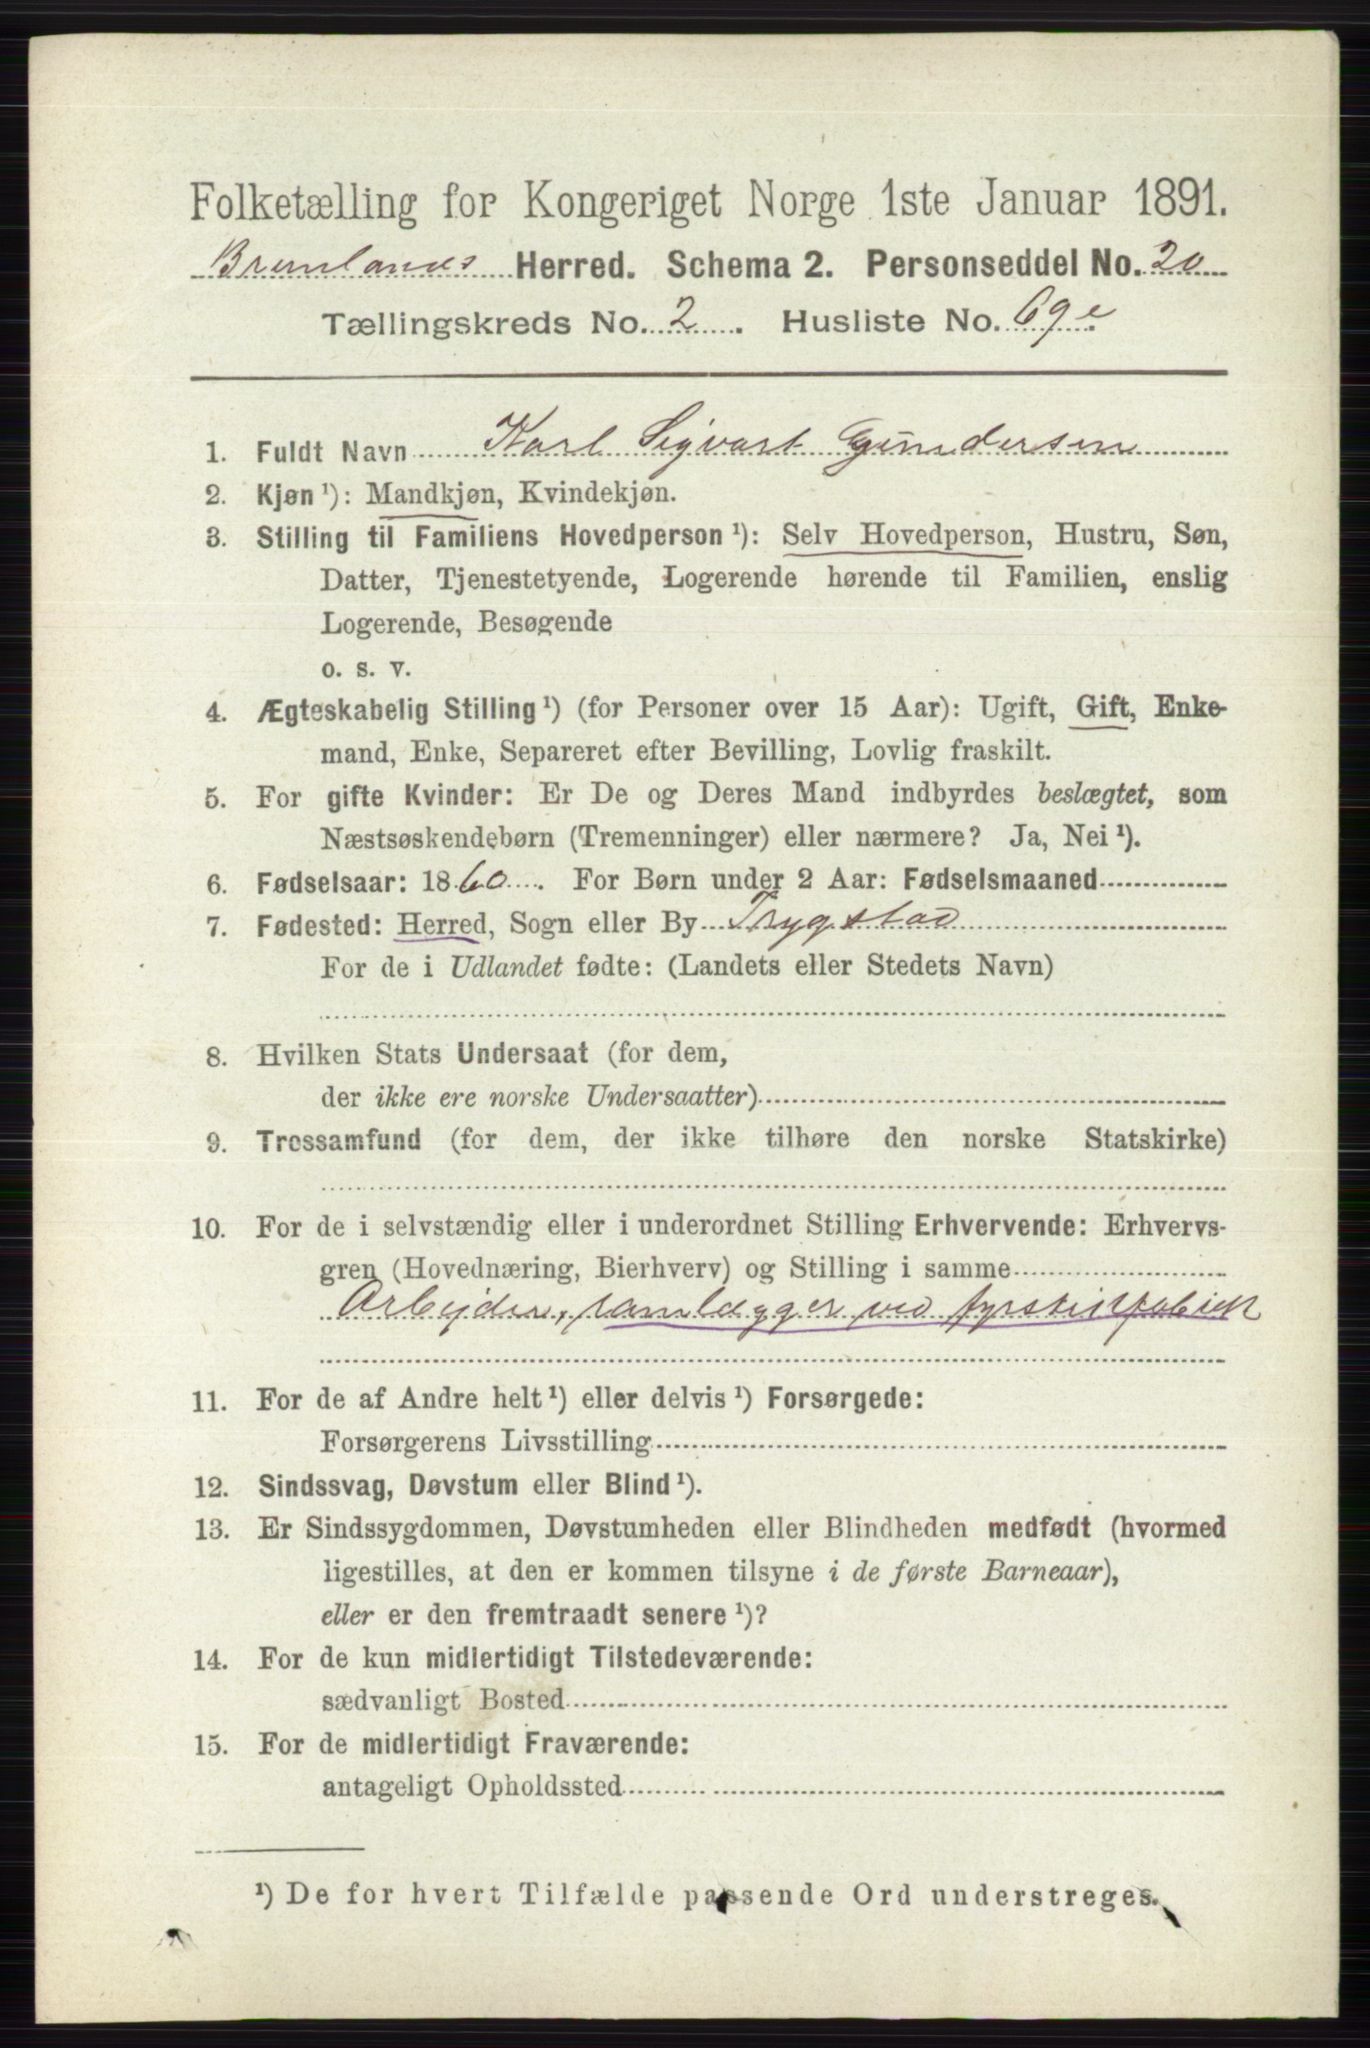 Folketælling for Kongeriget Norge 1ste Januar 1891.
Brunlanes Herred. Schema 2. Personseddel No. 20
Tællingskreds No. 2. Husliste No. 69e.
1. Fuldt Navn Karl Sigvart Gundersen
2. Kjøn ¹): Mandkjøn, Kvindekjøn.
3. Stilling til Familiens Hovedperson ¹): Selv Hovedperson, Hustru, Søn,
Datter, Tjenestetyende, Logerende hørende til Familien, enslig
Logerende, Besøgende
o. s. v.
4. Ægteskabelig Stilling ¹) (for Personer over 15 Aar): Ugift, Gift, Enke-
mand, Enke, Separeret efter Bevilling, Lovlig fraskilt.
5. For gifte Kvinder: Er De og Deres Mand indbyrdes beslægtet, som
Næstsøskendebørn (Tremenninger) eller nærmere? Ja, Nei ¹).
6. Fødselsaar: 1860. For Børn under 2 Aar: Fødselsmaaned
7. Fødested: Herred, Sogn eller By Trygstad
For de i Udlandet fødte: (Landets eller Stedets Navn)
8. Hvilken Stats Undersaat (for dem,
der ikke ere norske Undersaatter)
9. Trossamfund (for dem, der ikke tilhøre den norske Statskirke)
10. For de i selvstændig eller i underordnet Stilling Erhvervende: Erhvervs-
gren (Hovednæring, Bierhverv) og Stilling i samme
Arbejder, ramlægger ved fyrstikfabrik
11. For de af Andre helt ¹) eller delvis ¹) Forsørgede:
Forsørgerens Livsstilling
12. Sindssvag, Døvstum eller Blind ¹).
13. Er Sindssygdommen, Døvstumheden eller Blindheden medfødt (hvormed
ligestilles, at den er kommen tilsyne i de første Barneaar),
eller er den fremtraadt senere ¹)?
14. For de kun midlertidigt Tilstedeværende:
sædvanligt Bosted
15. For de midlertidigt Fraværende:
antageligt Opholdssted
¹) De for hvert Tilfælde passende Ord understreges.